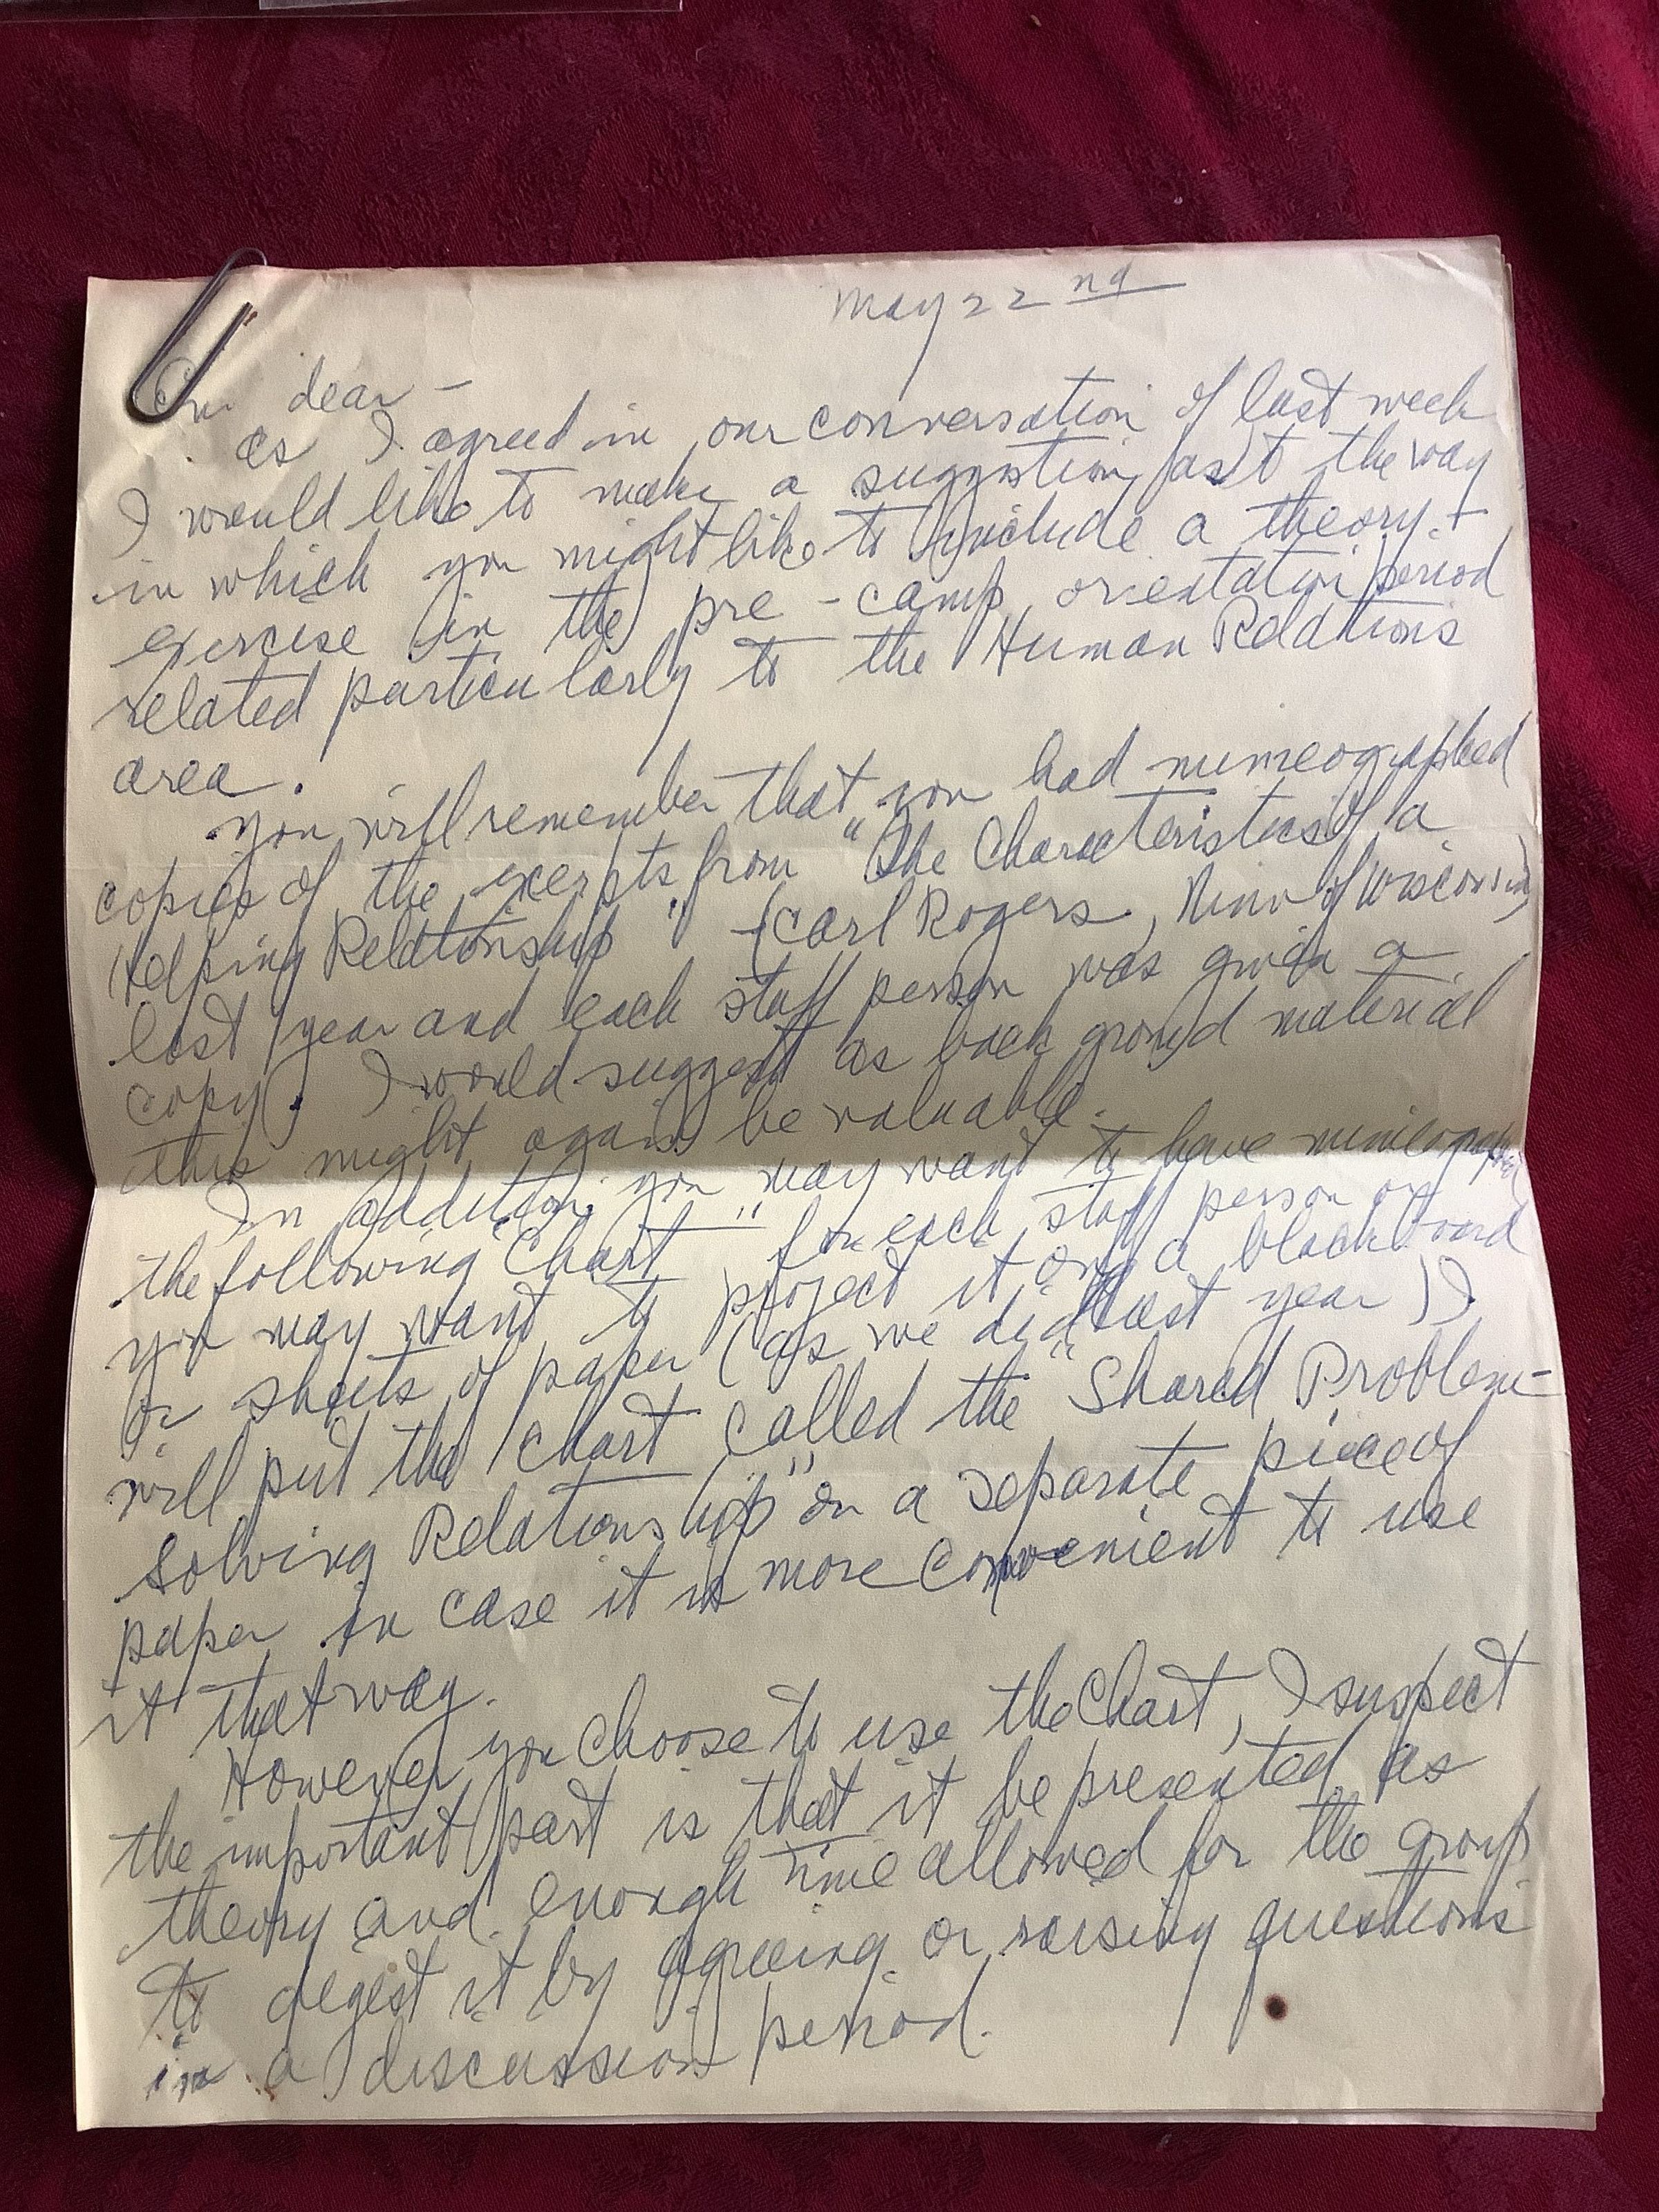 May 22 nd
dear -
as I agreed in our conversation of last week
I would like to make a suggestion as to the way
in which you might like to include a theory +
exercise in the pre-camp orientation period
related particularly to the Human Relations
area.
You will remember that you had mimeographed
copies of the excerpts from "The Characteristics of a
Helping Relationship" - (Carl Rogers, Univ of Wisconsin)
last year and each staff person was given a
copy. I would suggest as back ground material
this might again be valuable.
In addition you may want to have mimeographed
the following "Chart" for each staff person or
you may want to project it on a blackboard
or sheets of paper (as we did last year). I
will put the chart called the "Shared Problem-
Solving Relationship" on a separate piece of
paper in case it is more convenient to use
it that way.
However you choose to use the Chart, I suspect
the important part is that it be presented as
theory and enough time allowed for the group
to digest it by agreeing or raising questions
in a discussion period.